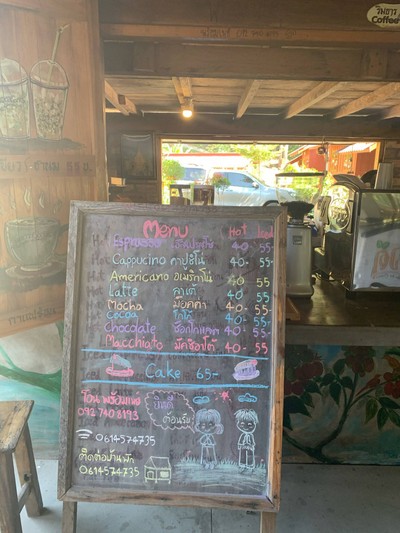 ริมธาร
Coffee
Menu Hot Iced
Espresso เอสเปรสโซ่ 40- 55-
Capoucino คาปูชิโน่ 40- 55-
Americano อเมริกาโน่ 40 55-
Latte ลาเต้ 40 55-
Mocha ม็อคค่า 40- 55-
Cocoa โกโก้ 40- 55-
Chocolate ช็อกโกแลต 40- 55-
Macchiato มัคชิอาโต้ 40- 55
Cake 65-
โอน พร้อมเพย์
092 740 8193
ยินดี
ต้อนรับ
0614574735
ติดต่อบ้านพัก
0614574735